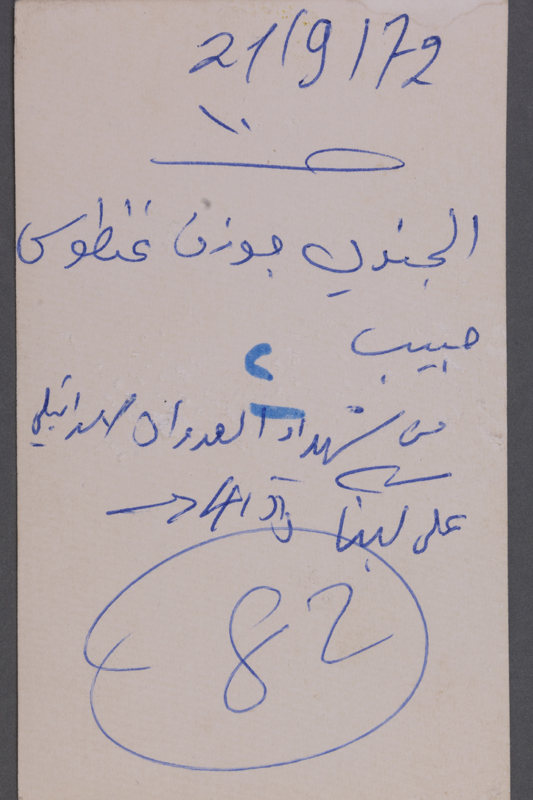 21/9/72
الجندي جوزف غنطوس
حبيب
من شهداء العدوان الاسرائيلي
على لبنان
82